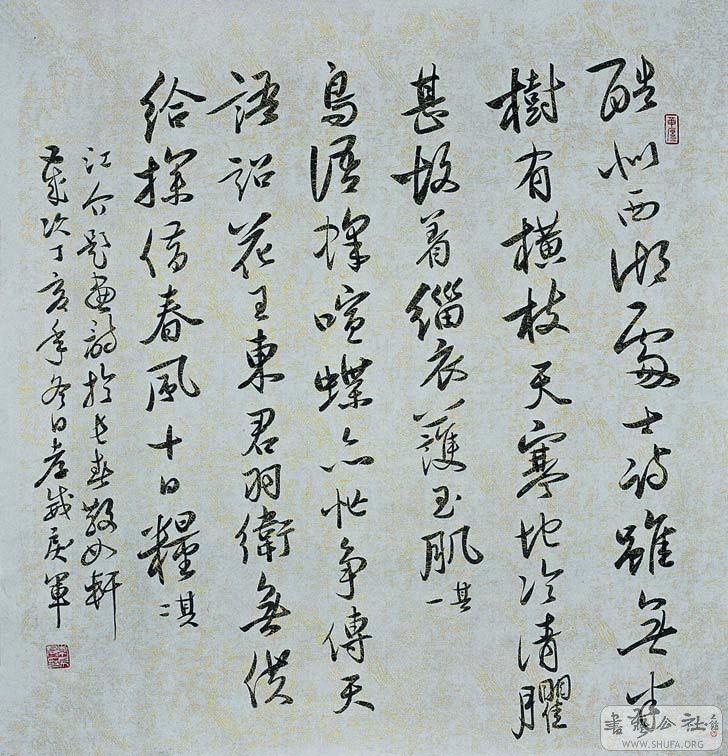 酷似西湖處士詩雖無半
樹有橫枝天寒地冷清臞
甚故着緇衣護玉肌 其一
鳥語蜂喧蝶亦忙爭傳天
語詔花王東君羽衛無供
給探借春風十日糧 其二
江公題畫詩於長春散如軒
歲次丁亥年冬日孝 庚軍
書藝公社
WWW.SHUFA.ORG